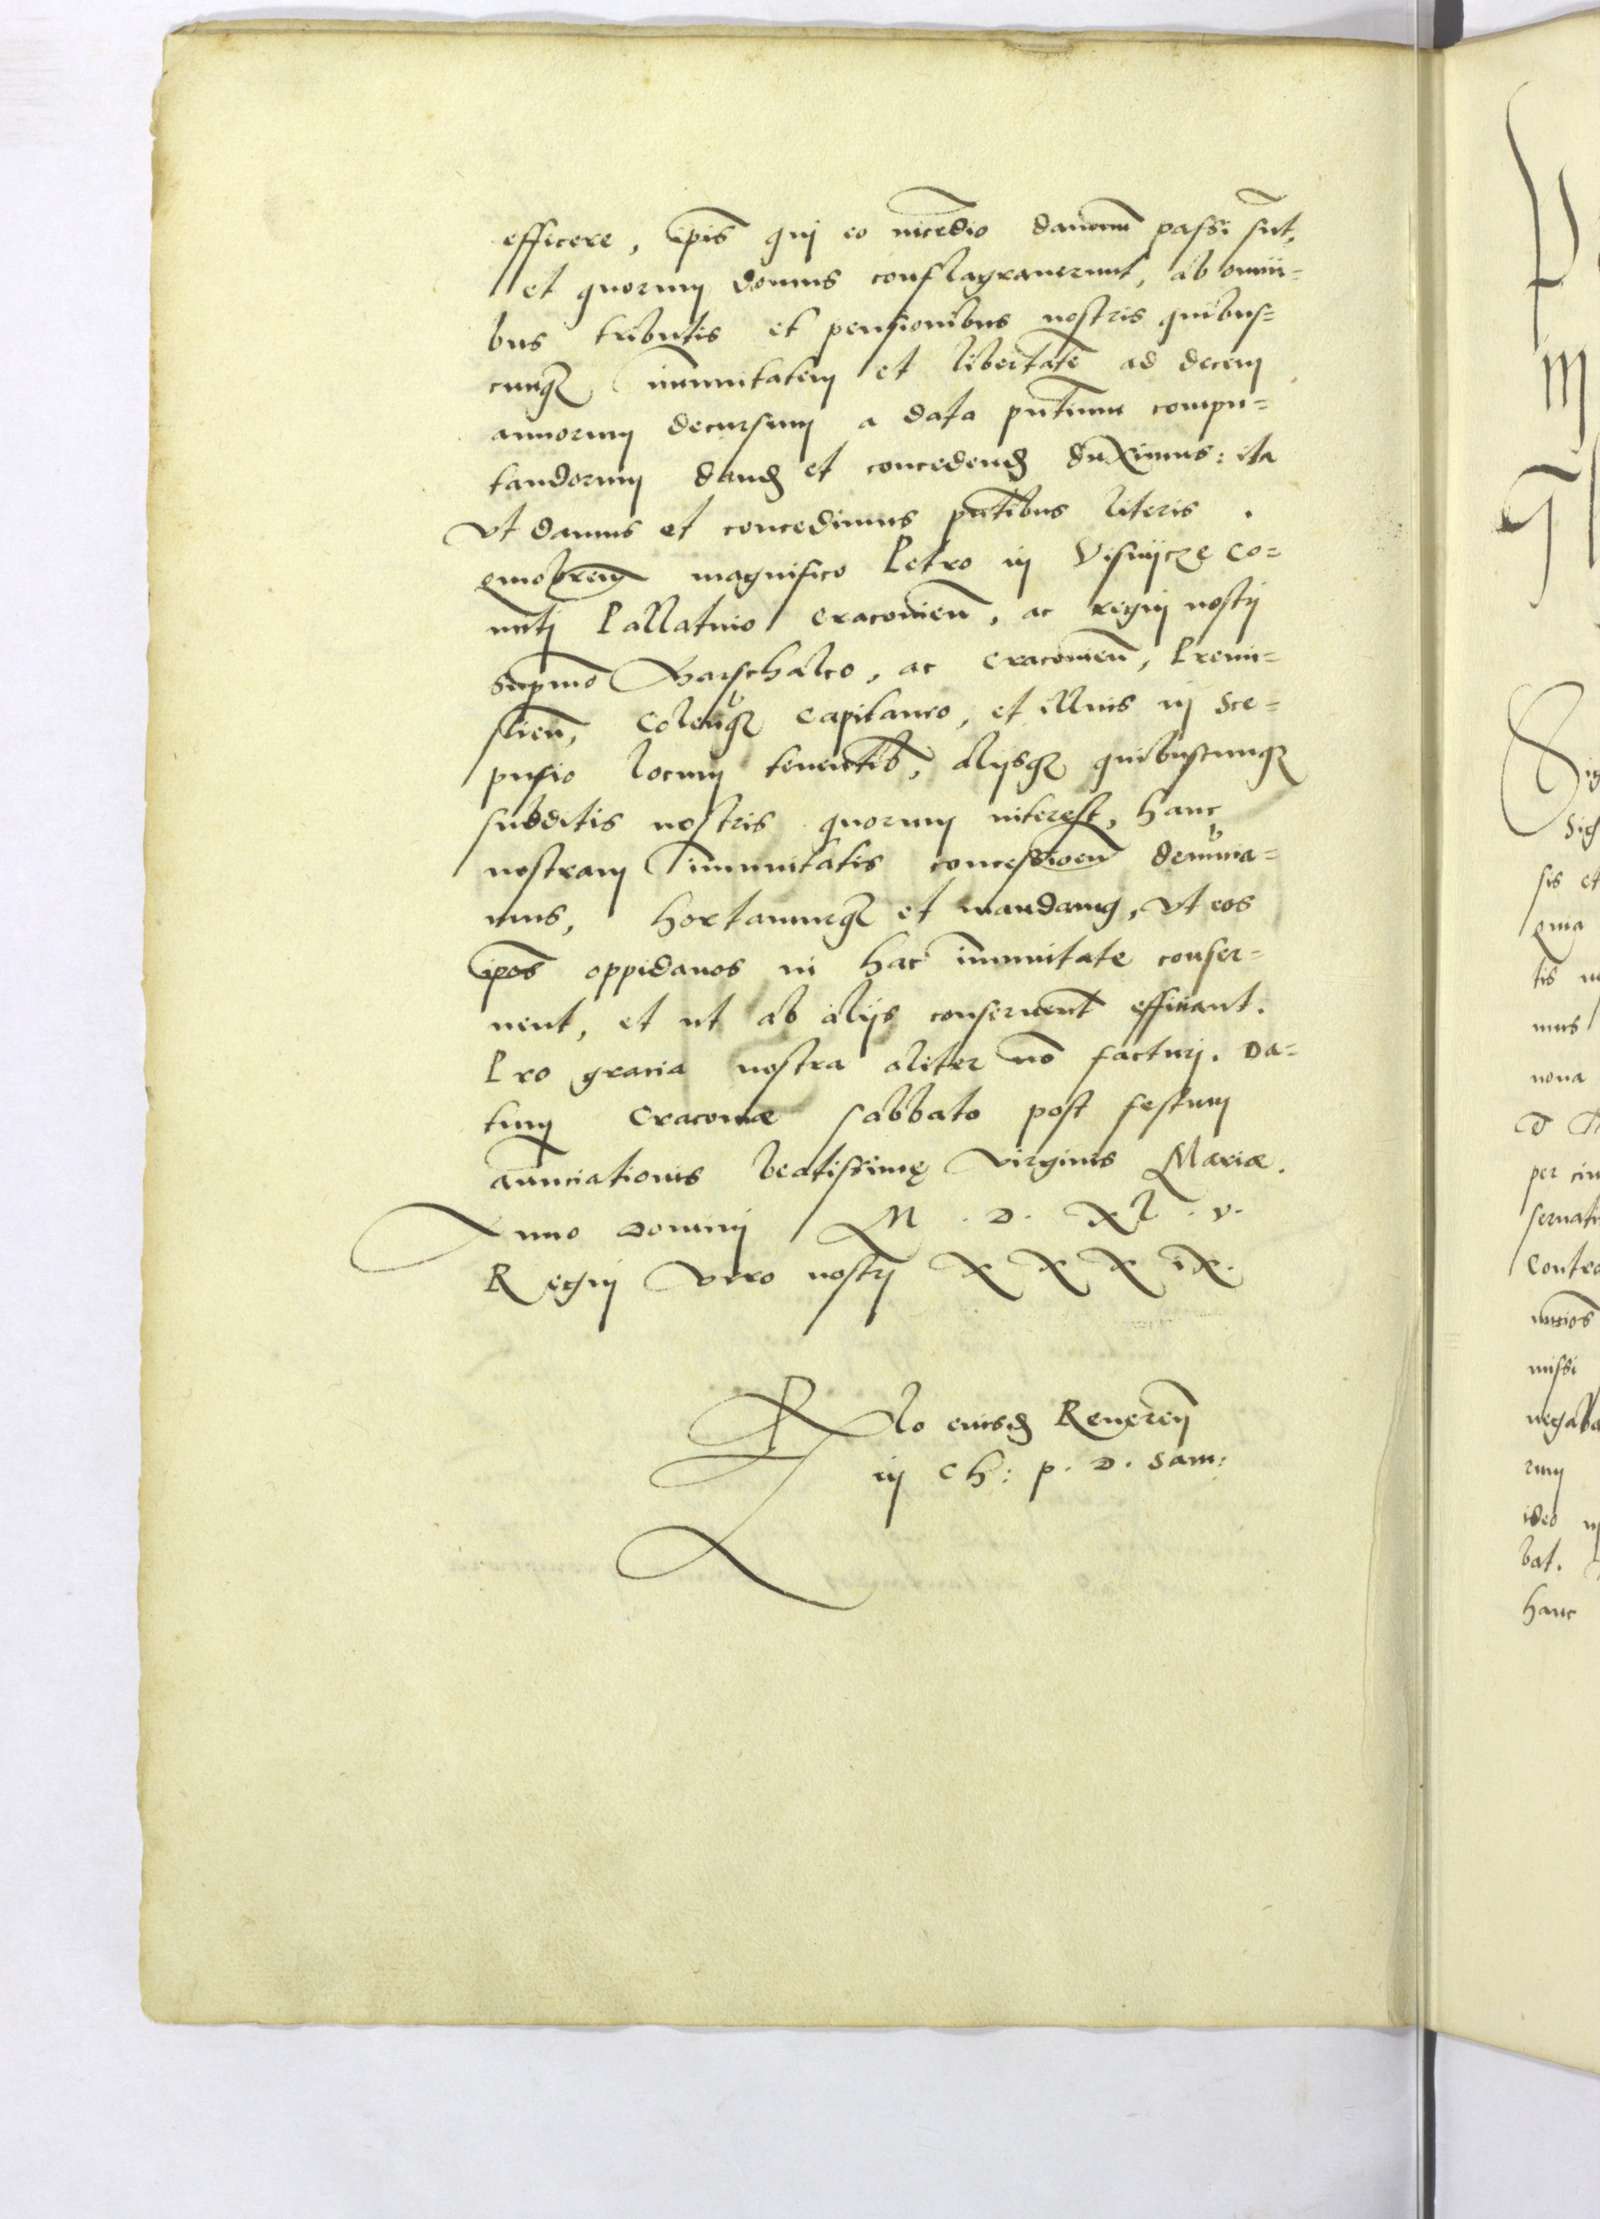 efficere, ipīs qui eo incēdio damnum passi sūt,
et quorum domus conflagraverunt, ab omni=
bus tributis et pensionibus nostris quibus=
cunqȝ immunitatem et libertatē ad decem
annorum decursum a data pn̄tium compu=
tandorum dandȝ et concedendȝ duximus: ita
Vt damus et concedimus pn̄tibus literis.
magnifico Petro in Visnijcze Co=
miti Pallatino Cracovien̄, ac regni nostri
Supmo Marschalco, ac Cracovien̄, Premi=
slien̄, Colenqȝ Capitaneo, et illius in Sce=
pusio locum tenentib, alijsqȝ quibuscunqȝ
subditis nostris quorum interest, hanc
nostram immunitatis concessioen̄ denūcia=
mus, hortamurqȝ et mandamꝰ, Vt eos
ipos̄ oppidanos in hac immunitate conser=
vent, et ut ab alijs conservent̄ efficiant.
Pro gracia nostra aliter nō facturi. Da=
tum Cracoviæ sabbato post festum
anūciationis beatissimę Virginis Mariæ.
Anno Domini M . D . XL . V.
Regni Vero nostri XXXIX.
Rlo eiusdȝ Reveren̄
in Ch: p. D. Sam:
P
m
Sig
sis et
Quia
tis
mus
nova
per
servati
Contra
nūcios
missi
negaba
rum
ideo
bat.
hanc